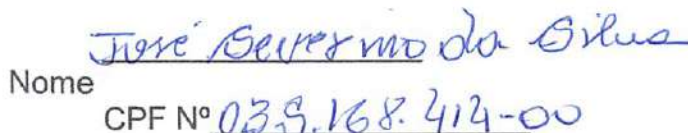 José Severino da Silva
Nome
CPF Nº 039.168.414-00